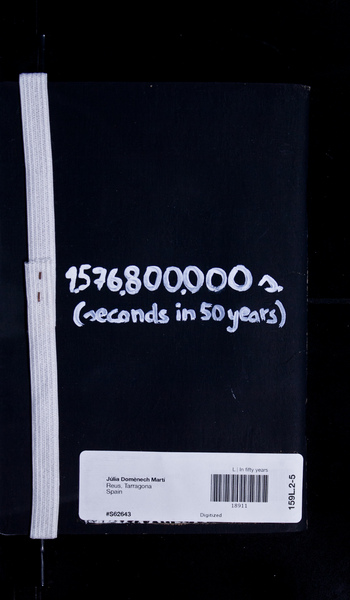 1.576.800.000 s.
(seconds in 50 years)
L: In fifty years
Júlia Domènech Martí
Reus, Tarragona
Spain
18911
#S62643
Digitized
159L.2-5